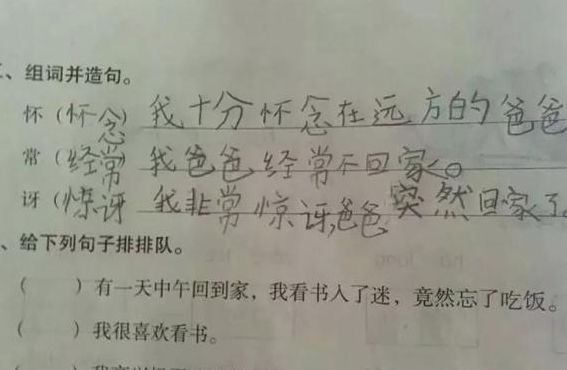 、组词并造句。
怀（怀念）我十分怀念在远方的爸爸
常（经常）我爸爸经常不回家。
讶（惊讶 我非常惊讶,爸爸突然回家了。
、给下列句子排排队。
（ ）有一天中午回到家，我看书入了迷，竟然忘了吃饭。
（ ）我很喜欢看书。